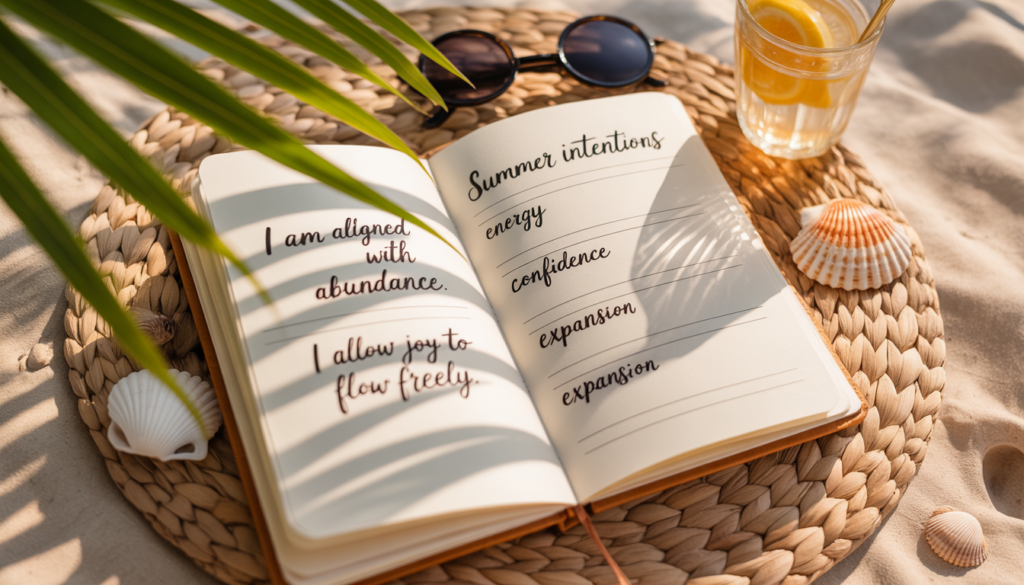 I am aligned
with
abundance.
I allow joy to
flow freely.
Summer intentions
energy
confidence
expansion
expansion